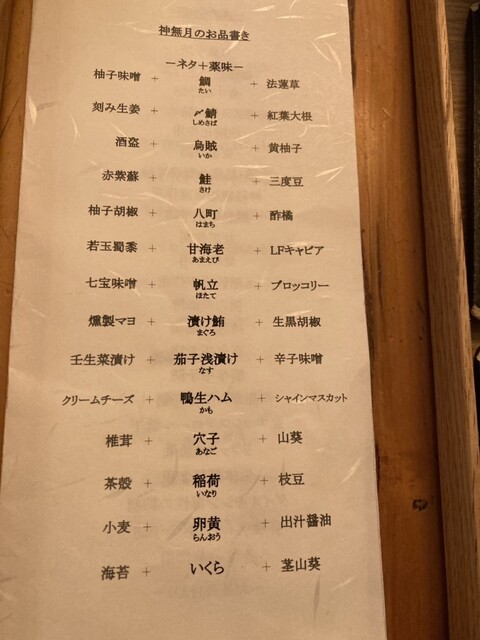 神無月のお品書き
－ネタ＋薬味－
柚子味噌 + 鯛 + 法蓮草
たい
刻み生姜 + 〆鯖 + 紅葉大根
しめさば
酒盗 + 烏賊 + 黄柚子
いか
赤紫蘇 + 鮭 + 三度豆
さけ
柚子胡椒 + 八町 + 酢橘
はまち
若玉蜀黍 + 甘海老 + LFキャビア
あまえび
七宝味噌 + 帆立 + ブロッコリー
ほたて
燻製マヨ + 漬け鮪 + 生黒胡椒
まぐろ
壬生菜漬け + 茄子浅漬け + 辛子味噌
なす
クリームチーズ + 鴨生ハム + シャインマスカット
かも
椎茸 + 穴子 + 山葵
あなご
茶殻 + 稲荷 + 枝豆
いなり
小麦 + 卵黄 + 出汁醤油
らんおう
海苔 + いくら + 茎山葵